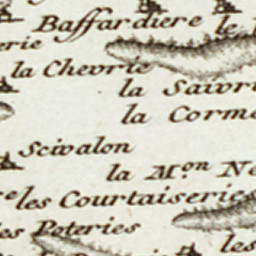 Baffardiere le
erie
la Chevrie
la Saivri
la Corme
Scivalon
la M.on Ne
les Courtaiseries
les Poteries
les